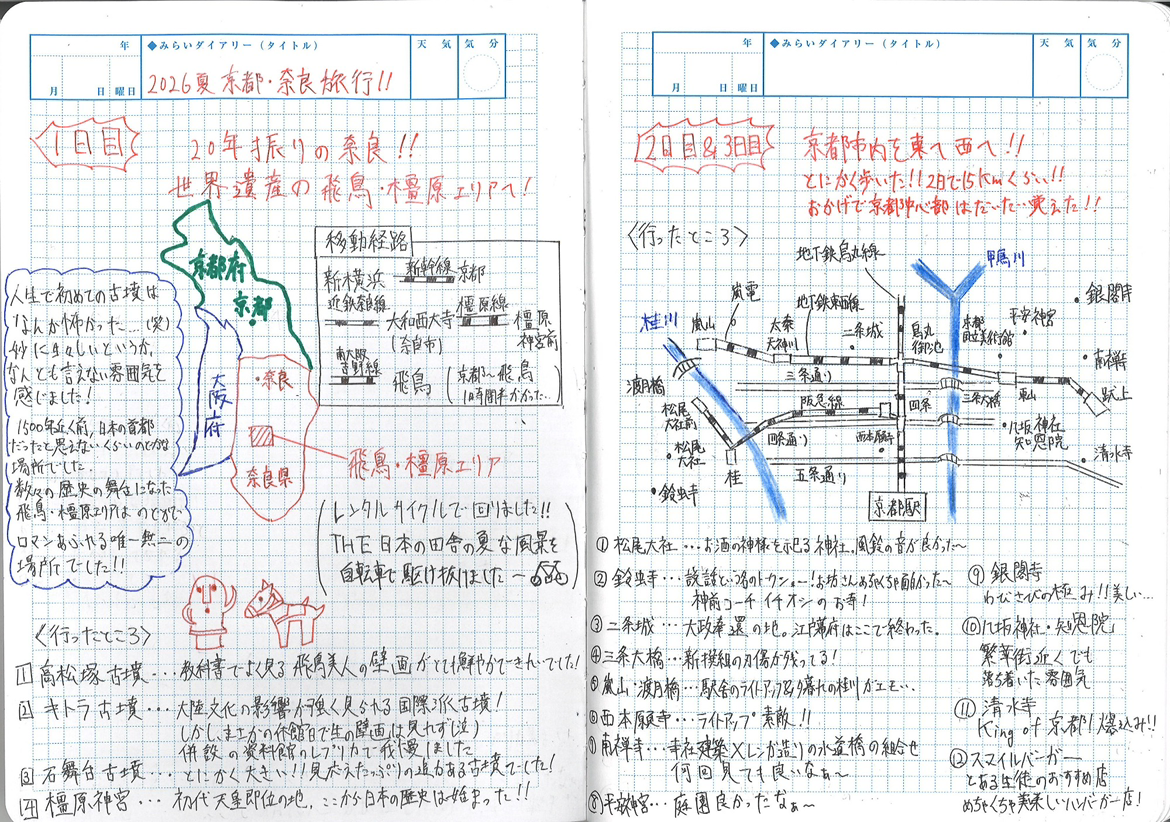 年
◆みらいダイアリー（タイトル）
天 気
気 分
月
日
曜日
2026夏 京都・奈良旅行!!
1日目
20年振りの奈良!!
世界遺産の飛鳥・橿原エリアへ!
京都府
京都
大阪府
奈良
奈良県
飛鳥・橿原エリア
人生で初めての古墳は
なんか怖かった…(笑)
妙に生々しいというか、
なんとも言えない雰囲気を
感じました!
1500年近く前、日本の首都
だったと思えないくらいのどかな
場所でした。
数々の歴史の舞台になった
飛鳥・橿原エリアはのどかで
ロマンあふれる唯一無二の
場所でした!!
移動経路
新横浜 新幹線 京都
近鉄奈良線 大和西大寺 橿原線 橿原神宮前
(奈良市)
南大阪
吉野線
飛鳥
(京都から飛鳥
1時間半かかった…)
(レンタルサイクルで回りました!!
THE 日本の田舎の夏な風景を
自転車で駆け抜けました〜)
〈行ったところ〉
1 高松塚古墳…教科書でよく見る飛鳥美人の壁画がとても鮮やかできれいでした!
2 キトラ古墳…大陸文化の影響が強く見られる国際派古墳!
しかし、まさかの休館日で生の壁画は見れず(泣)
併設の資料館のレプリカで我慢しました
3 石舞台古墳…とにかく大きい!!見応えたっぷりの迫力ある古墳でした!
4 橿原神宮…初代天皇即位の地。ここから日本の歴史は始まった!!
年
◆みらいダイアリー（タイトル）
天 気
気 分
月
日
曜日
2日目&3日目
京都市内を東へ西へ!!
とにかく歩いた!!2日で15kmくらい!!
おかげで京都中心部はだいたい覚えた!!
〈行ったところ〉
地下鉄烏丸線
鴨川
嵐電
地下鉄東西線
桂川
嵐山
太秦
天神川
二条城
烏丸
御池
京都
国立美術館
平安神宮
銀閣寺
南禅寺
渡月橋
三条通り
三条大橋
東山
蹴上
松尾
大社前
阪急線
四条
松尾
大社
四条通り
西本願寺
八坂神社
知恩院
桂
五条通り
清水寺
鈴虫寺
京都駅
① 松尾大社…お酒の神様を祀る神社。風鈴の音が良かった〜
② 鈴虫寺…説話という名のトークショー!お坊さんめちゃくちゃ面白かった〜
神前コーチイチオシのお寺!
③ 二条城…大政奉還の地。江戸幕府はここで終わった。
④ 三条大橋…新撰組の刀傷が残ってる!
⑤ 嵐山・渡月橋…駅舎のライトアップ&夕暮れの桂川がエモい…
⑥ 西本願寺…ライトアップ素敵!!
⑦ 南禅寺…寺社建築×レンガ造りの水道橋の組合せ
何回見ても良いなぁ〜
⑧ 平安神宮…庭園良かったなぁ〜
⑨ 銀閣寺
わびさびの極み!!美しい…
⑩ 八坂神社・知恩院
繁華街近くでも
落ち着いた雰囲気
⑪ 清水寺
King of 京都!爆込み!!
⑫ スマイルバーガー
とある生徒のおすすめ店
めちゃくちゃ美味しいハンバーガー店!